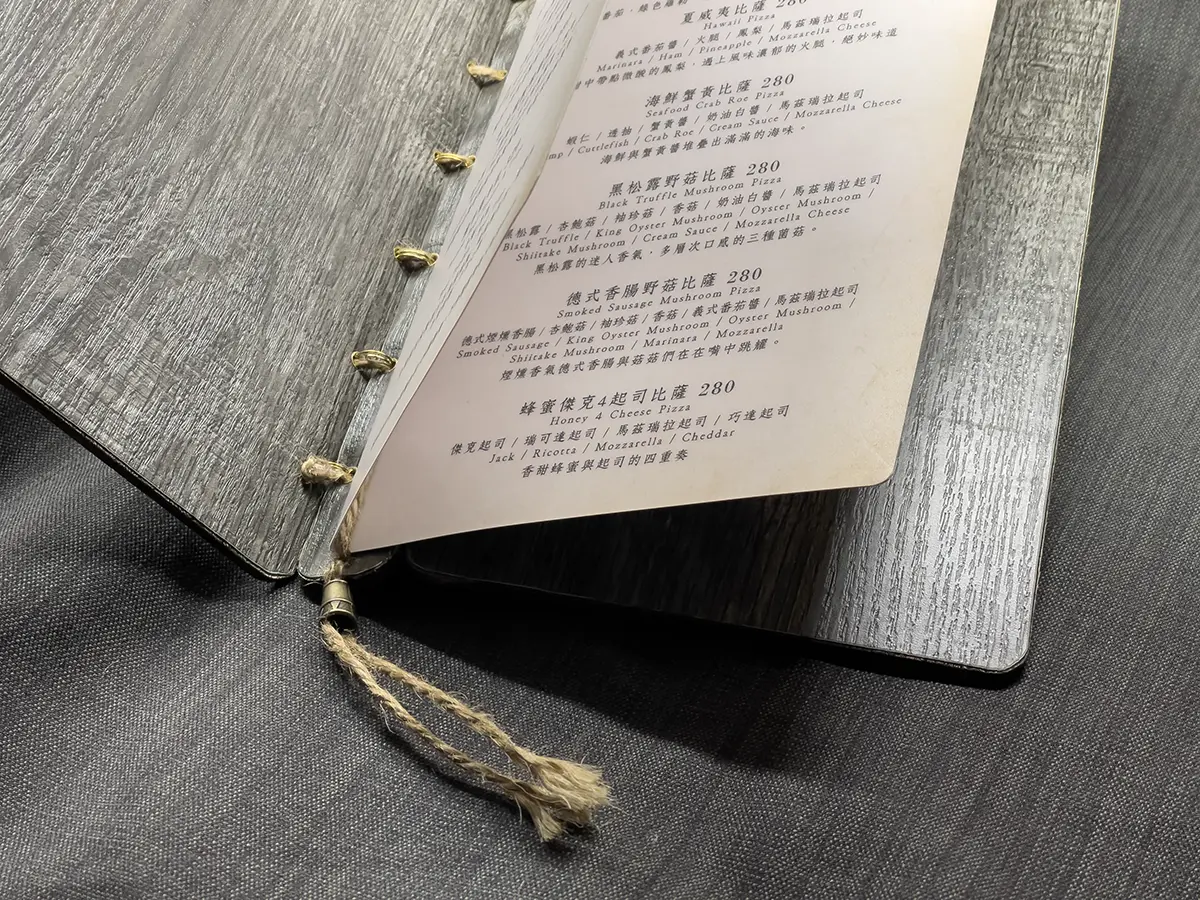 番茄、綠色蘿勒
夏威夷比薩 280
Hawaii Pizza
義式番茄醬 / 火腿 / 鳳梨 / 馬茲瑞拉起司
Marinara / Ham / Pineapple / Mozzarella Cheese
中帶點微酸的鳳梨，遇上風味濃郁的火腿，絕妙味道
海鮮蟹黃比薩 280
Seafood Crab Roe Pizza
蝦仁 / 透抽 / 蟹黃醬 / 奶油白醬 / 馬茲瑞拉起司
mp / Cuttlefish / Crab Roe / Cream Sauce / Mozzarella Cheese
海鮮與蟹黃醬堆疊出滿滿的海味。
黑松露野菇比薩 280
Black Truffle Mushroom Pizza
黑松露 / 杏鮑菇 / 袖珍菇 / 香菇 / 奶油白醬 / 馬茲瑞拉起司
Black Truffle / King Oyster Mushroom / Oyster Mushroom /
Shiitake Mushroom / Cream Sauce / Mozzarella Cheese
黑松露的迷人香氣，多層次口感的三種菌菇。
德式香腸野菇比薩 280
Smoked Sausage Mushroom Pizza
德式煙燻香腸 / 杏鮑菇 / 袖珍菇 / 香菇 / 義式番茄醬 / 馬茲瑞拉起司
Smoked Sausage / King Oyster Mushroom / Oyster Mushroom /
Shiitake Mushroom / Marinara / Mozzarella
煙燻香氣德式香腸與菇菇們在在嘴中跳耀。
蜂蜜傑克4起司比薩 280
Honey 4 Cheese Pizza
傑克起司 / 瑞可達起司 / 馬茲瑞拉起司 / 巧達起司
Jack / Ricotta / Mozzarella / Cheddar
香甜蜂蜜與起司的四重奏